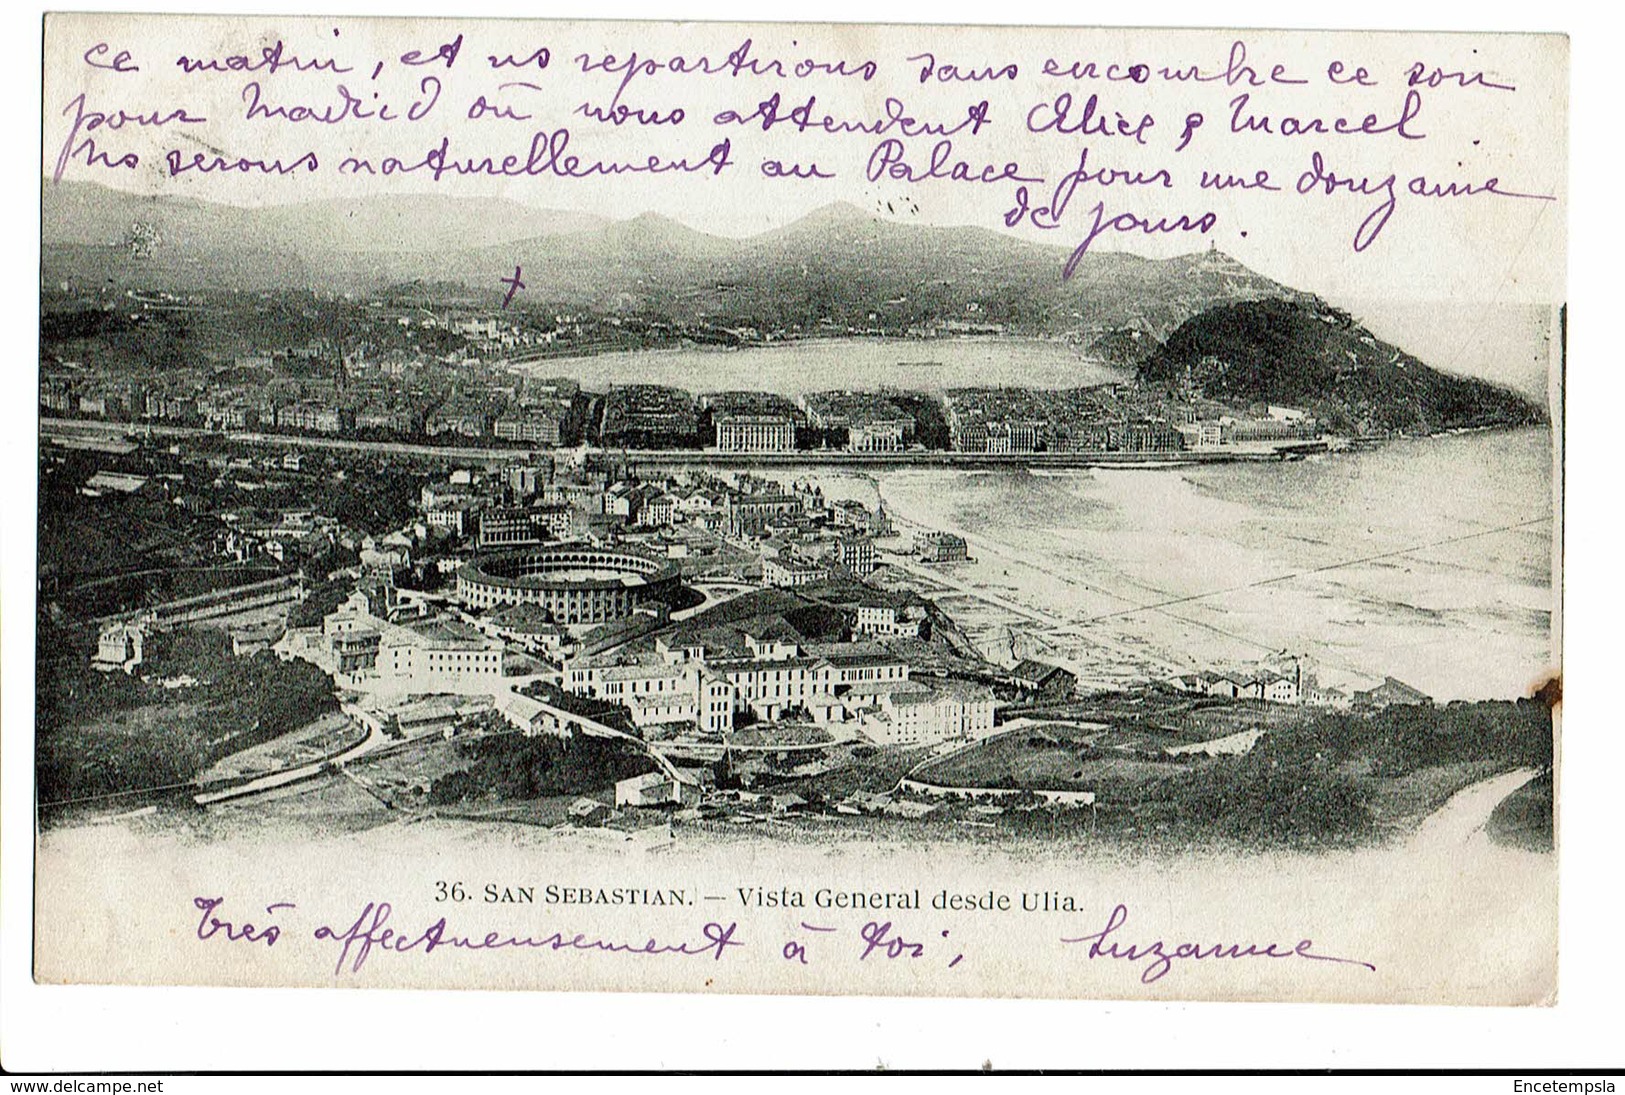 ce matin, et ns repartirons sans encombre ce soir
pour Madrid où nous attendent Alice & Marcel.
Ns serons naturellement au Palace pour une douzaine
de jours.
x
36. SAN SEBASTIAN. — Vista General desde Ulia.
Très affectueusement à toi, Suzanne
www.delcampe.net
Encetempsla